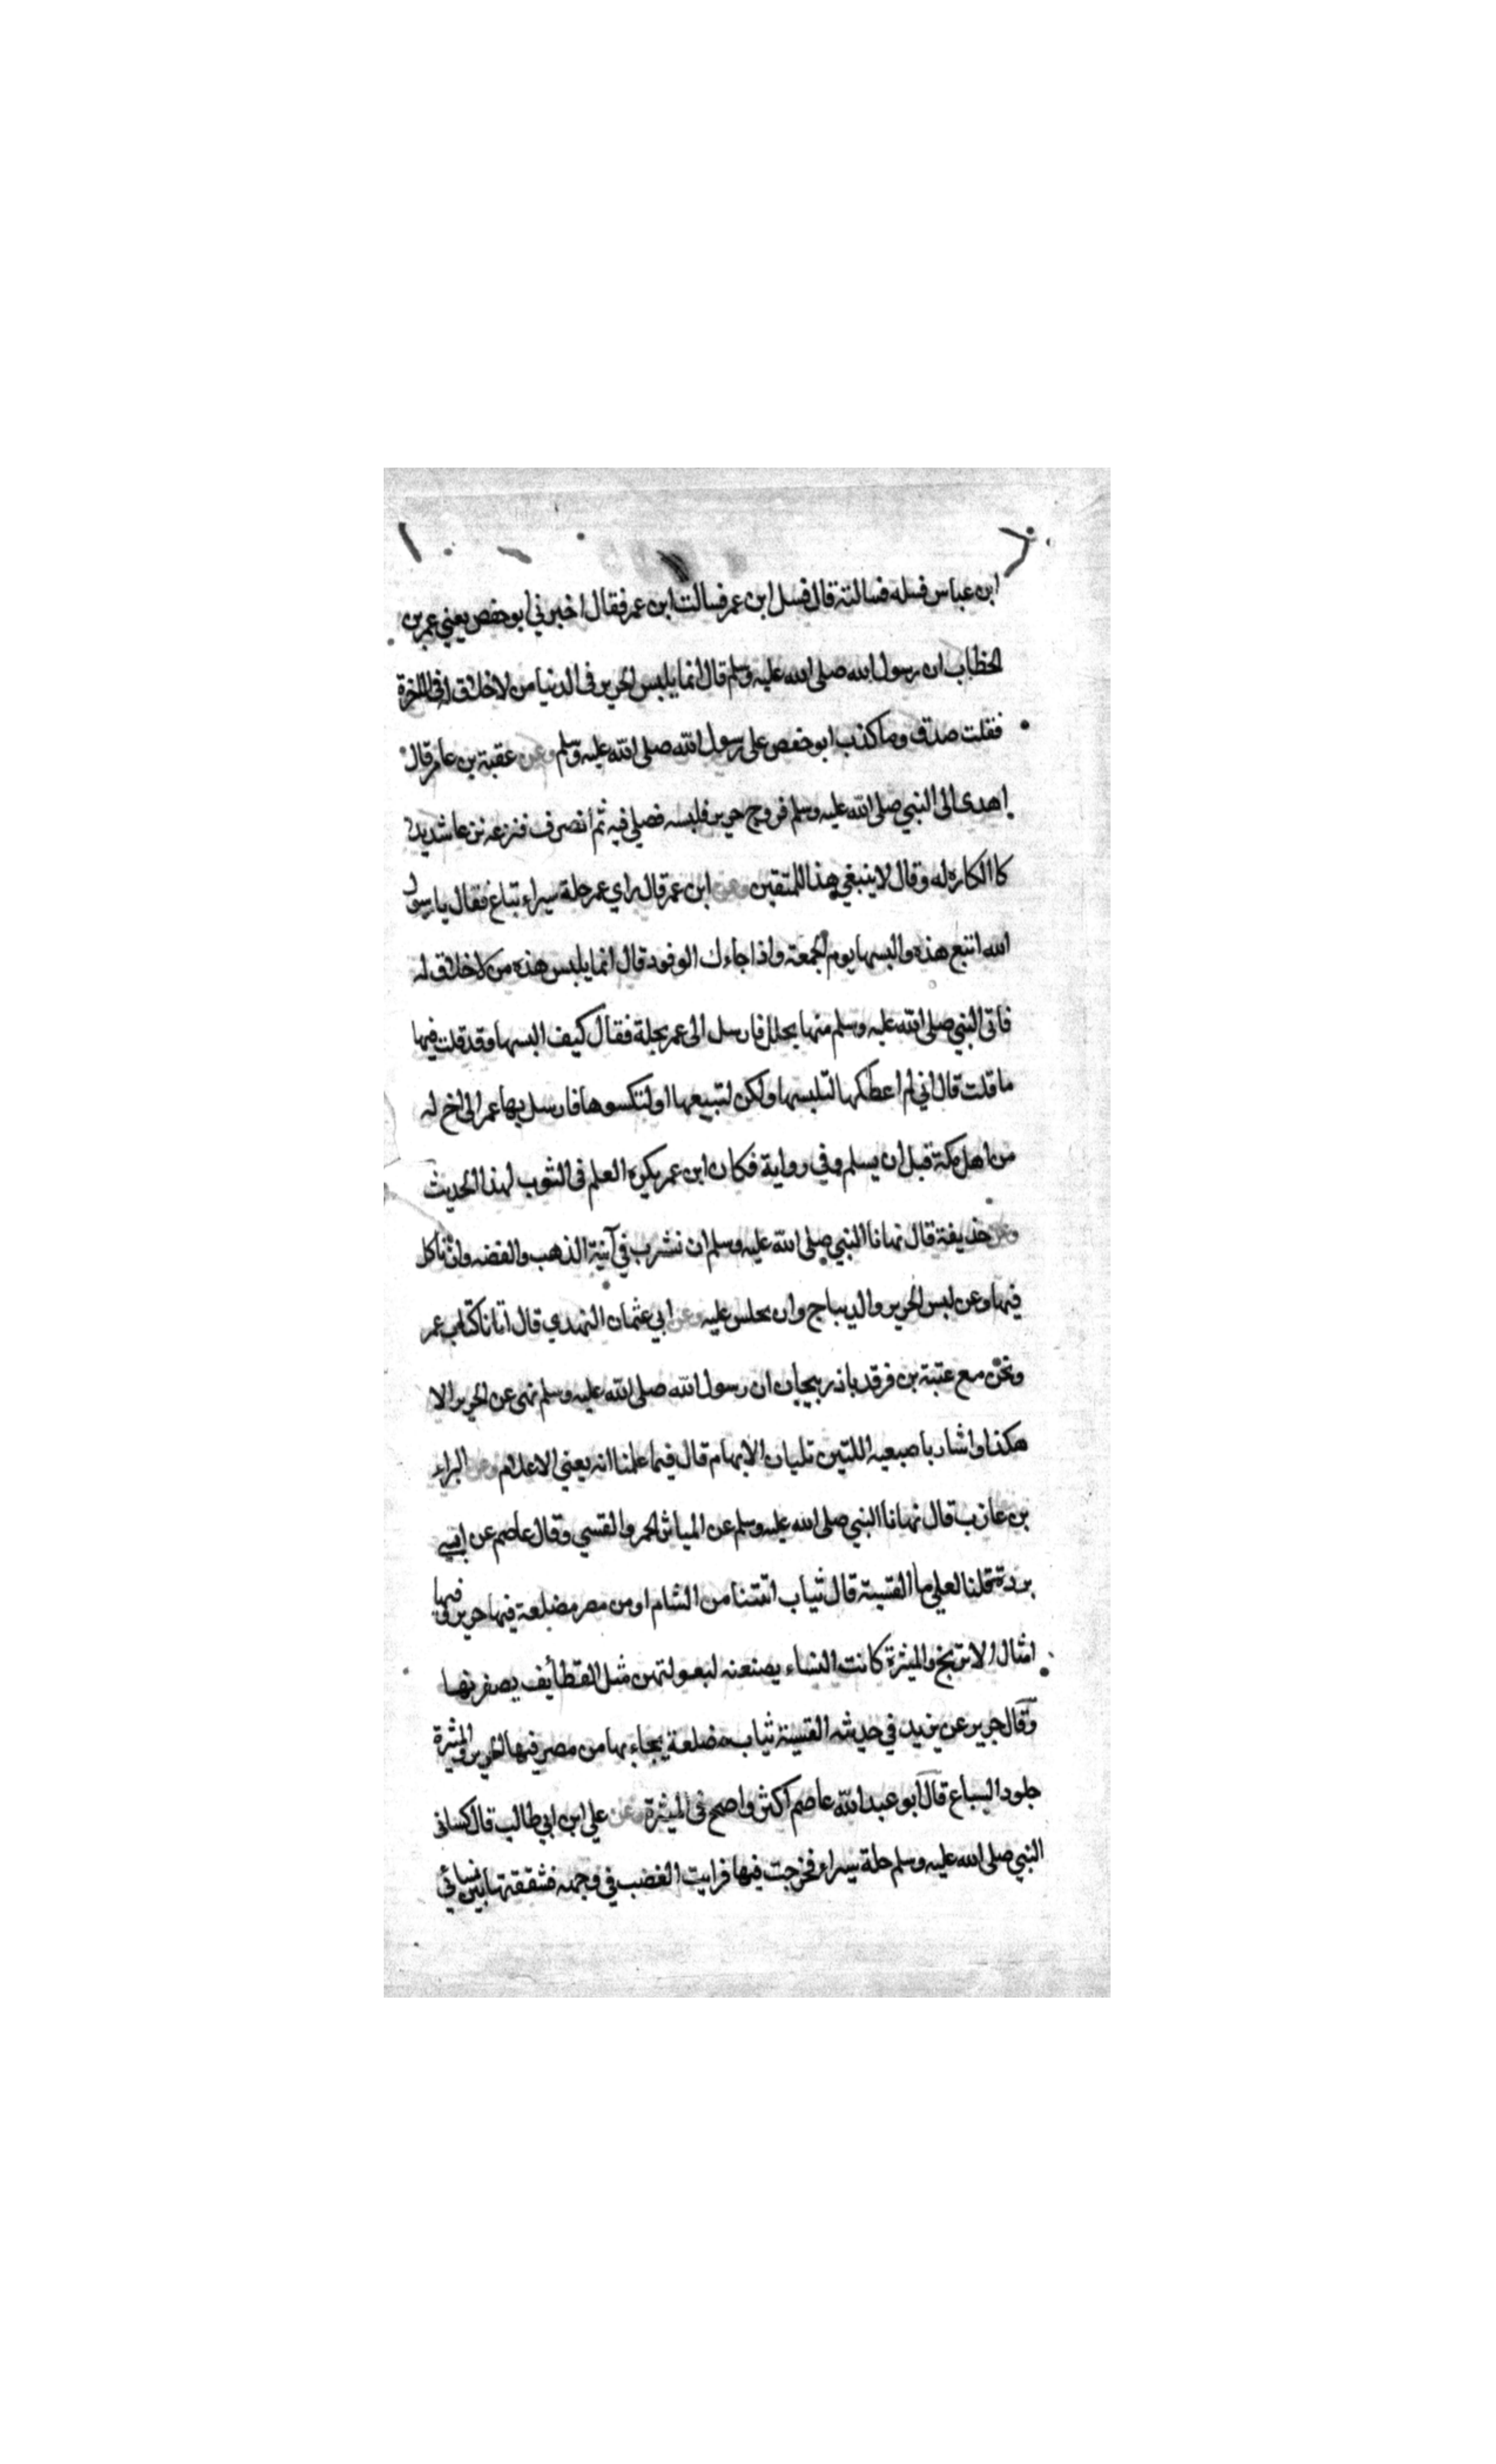 ابن عباس فسله فسالته قال فسل ابن عمر فسالت ابن عمر فقال اخبرني ابو حفص يعني عمر بن
الخطاب ان رسول الله صلى الله عليه وسلم قال انما يلبس الحرير فى الدنيا من لا خلاق له فى الاخرة
فقلت صدق وما كذب ابو حفص على رسول الله صلى الله عليه وسلم وعن عقبة بن عامر قال
اهدى الى النبي صلى الله عليه وسلم فروج حرير فلبسه فصلى فيه ثم انصرف فنزعه نزعا شديدا
كالكاره له وقال لا ينبغي هذا للمتقين وعن ابن عمر قال راي عمر حلة سيراء تباع فقال يا رسول
الله ابتع هذه والبسها يوم الجمعة واذا جاءك الوفود قال انما يلبس هذه من لا خلاق له
فاتى النبي صلى الله عليه وسلم منها بحلل فارسل الى عمر بحلة فقال كيف البسها وقد قلت فيها
ما قلت قال اني لم اعطكها لتلبسها ولكن لتبيعها او لتكسوها فارسل بها عمر الى اخ له
من اهل مكة قبل ان يسلم وفي رواية فكان ابن عمر يكره العلم فى الثوب لهذا الحديث
وعن حذيفة قال نهانا النبي صلى الله عليه وسلم ان نشرب في آنية الذهب والفضه وان ناكل
فيها وعن لبس الحرير والديباج وان نجلس عليه وعن ابي عثمان النهدي قال اتانا كتاب عمر
ونحن مع عتبة بن فرقد باذربيجان ان رسول الله صلى الله عليه وسلم نهى عن الحرير الا
هكذا واشار باصبعيه اللتين تليان الابهام قال فيما علمنا انه يعني الاعلام وعن البراء
بن عازب قال نهانا النبي صلى الله عليه وسلم عن المياثر الحمر والقسي وقال عاصم عن ابي
بردة قلنا لعلي ما القسية قال ثياب اتتنا من الشام او من مصر مضلعة فيها حرير فيها
امثال الاترنج والميثرة كانت النساء يصنعنه لبعولتهن مثل القطائف يصفرنها
وقال جرير عن يزيد في حديثه القسية ثياب مضلعة يجاء بها من مصر فيها الحرير والميثرة
جلود السباع قال ابو عبد الله عاصم اكثر واصح فى الميثرة وعن علي ابن ابي طالب قال كسانى
النبي صلى الله عليه وسلم حلة سيراء فخرجت فيها فرايت الغضب في وجهه فشققتها بين نسائي